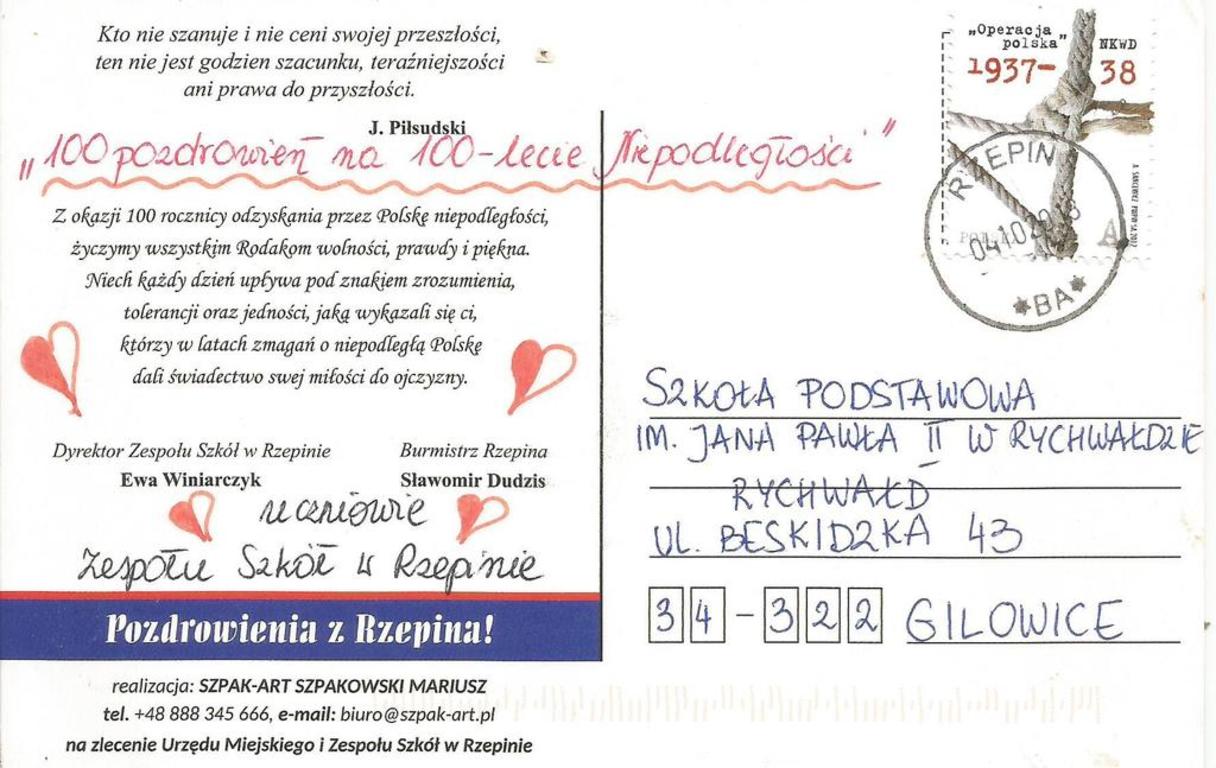 Kto nie szanuje i nie ceni swojej przeszłości,
ten nie jest godzien szacunku, teraźniejszości
ani prawa do przyszłości.
J. Piłsudski
„100 pozdrowień na 100-lecie Niepodległości"
Z okazji 100 rocznicy odzyskania przez Polskę niepodległości,
życzymy wszystkim Rodakom wolności, prawdy i piękna.
Niech każdy dzień upływa pod znakiem zrozumienia,
tolerancji oraz jedności, jaką wykazali się ci,
którzy w latach zmagań o niepodległą Polskę
dali świadectwo swej miłości do ojczyzny.
Dyrektor Zespołu Szkół w Rzepinie
Ewa Winiarczyk
Burmistrz Rzepina
Sławomir Dudzis
uczniowie
Zespołu Szkół w Rzepinie
Pozdrowienia z Rzepina!
realizacja: SZPAK-ART SZPAKOWSKI MARIUSZ
tel. +48 888 345 666, e-mail: biuro@szpak-art.pl
na zlecenie Urzędu Miejskiego i Zespołu Szkół w Rzepinie
„Operacja
polska" NKWD
1937-38
POLSKA A
RZEPIN
04.10.
*BA*
SZKOŁA PODSTAWOWA
IM. JANA PAWŁA II W RYCHWAŁDZIE
RYCHWAŁD
UL. BESKIDZKA 43
34-322 GILOWICE